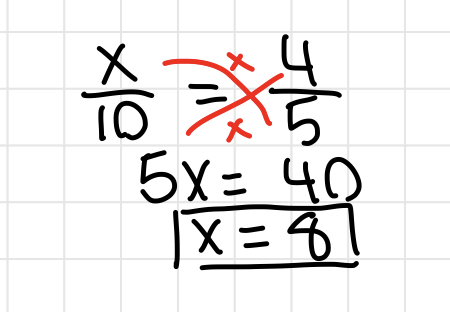 x/10 = 4/5
5x = 40
x = 8